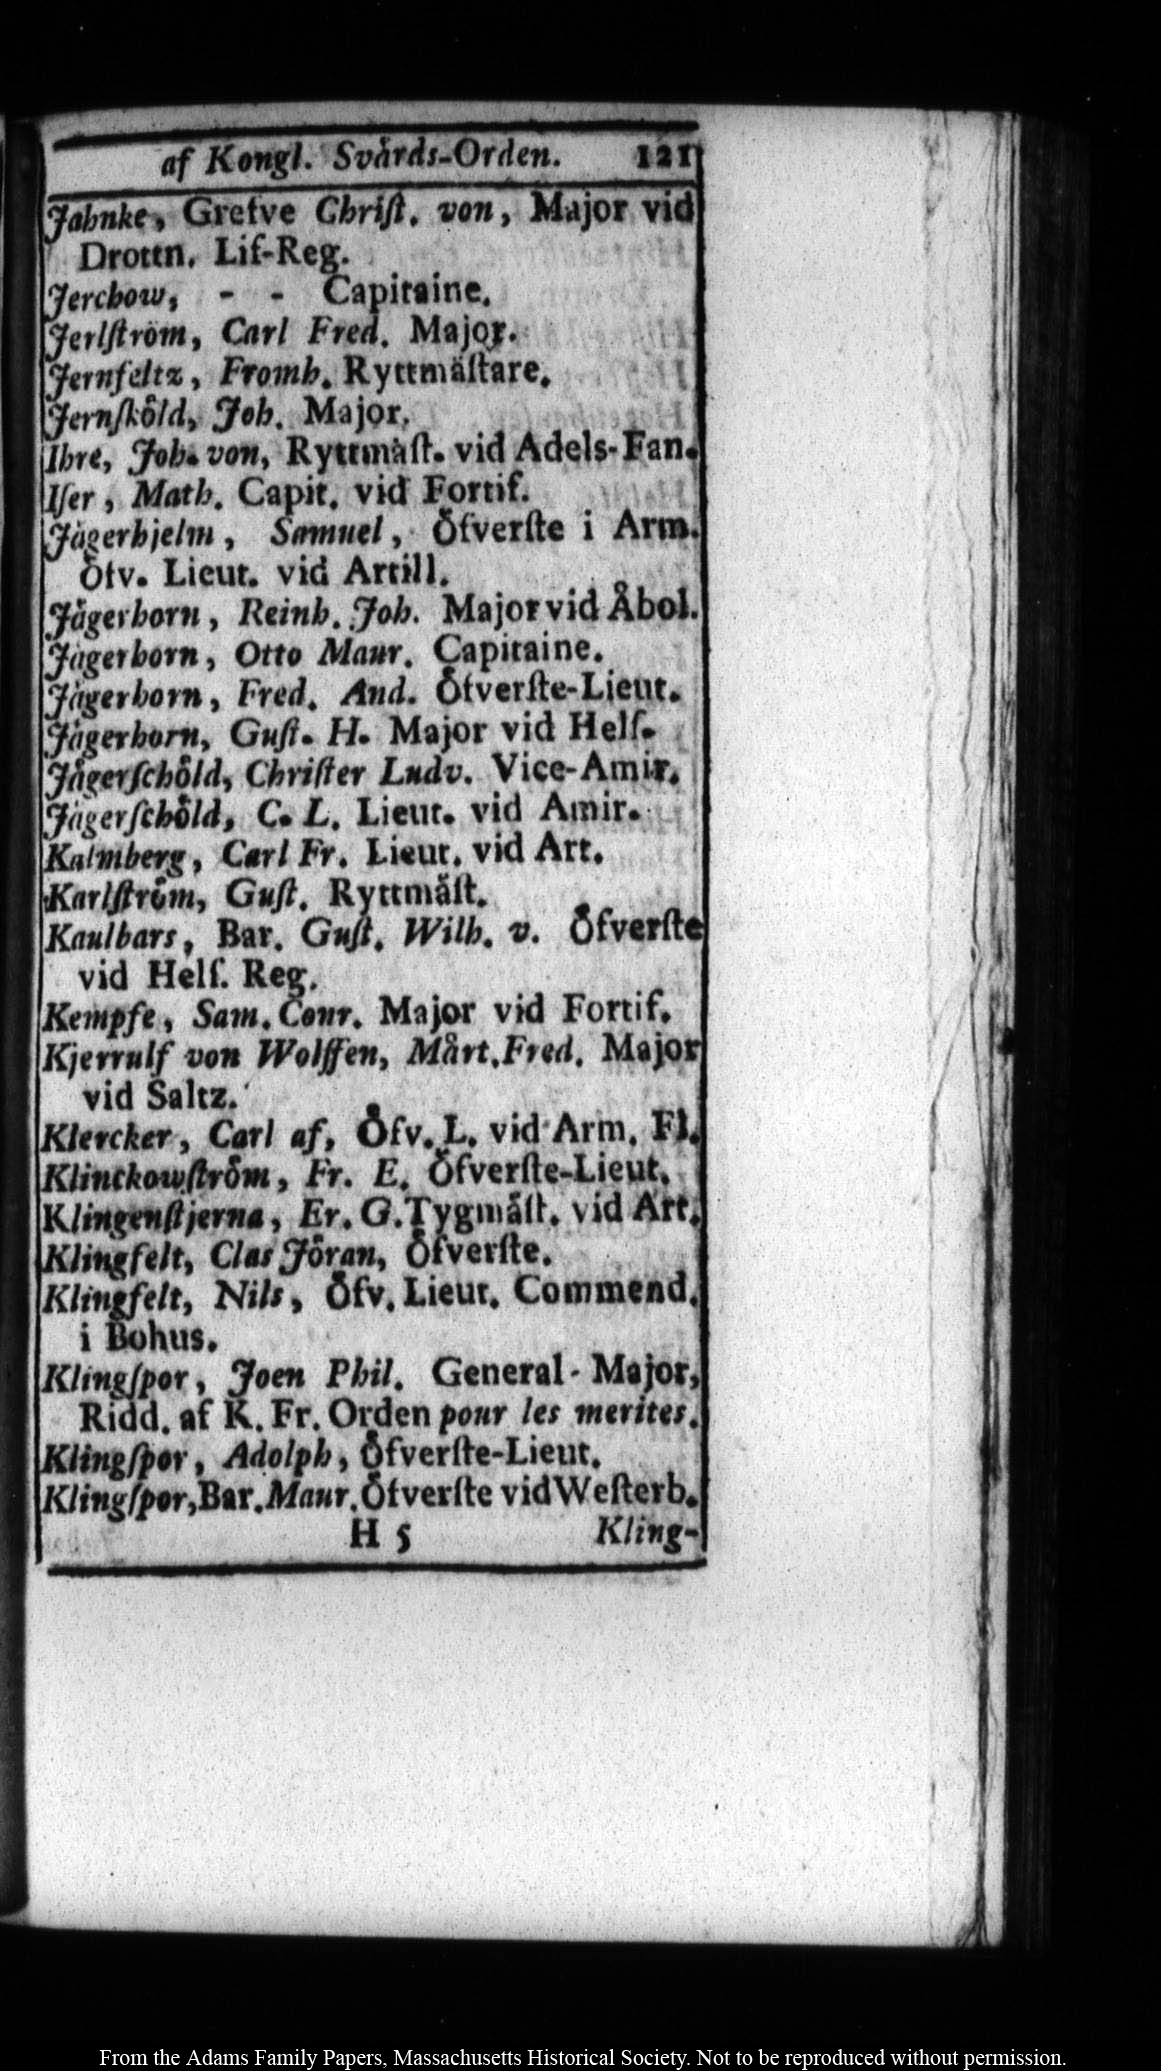 af Kongl. Svårds-Orden. 121
Jahnke, Grefve Chriſt. von, Major vid
Drottn. Lif-Reg.
Jerchow, - - Capitaine.
Jerlſtröm, Carl Fred. Major.
Jernfeltz, Fromh. Ryttmäſtare.
Jernſköld, Joh. Major.
Ihre, Joh. von, Ryttmäſt. vid Adels-Fan.
Iſer, Math. Capit. vid Fortif.
Jägerhjelm, Samuel, Öfverſte i Arm.
Öfv. Lieut. vid Artill.
Jägerhorn, Reinh. Joh. Major vid Åbol.
Jägerhorn, Otto Maur. Capitaine.
Jägerhorn, Fred. And. Öfverſte-Lieut.
Jägerhorn, Guſt. H. Major vid Helſ.
Jägerſchöld, Chriſter Ludv. Vice-Amir.
Jägerſchöld, C. L. Lieut. vid Amir.
Kalmberg, Carl Fr. Lieut. vid Art.
Karlſtröm, Guſt. Ryttmäſt.
Kaulbars, Bar. Guſt. Wilh. v. Öfverſte
vid Helſ. Reg.
Kempfe, Sam. Conr. Major vid Fortif.
Kjerrulf von Wolffen, Mårt. Fred. Major
vid Saltz.
Klercker, Carl af, Öfv. L. vid Arm. Fl.
Klinckowſtröm, Fr. E. Öfverſte-Lieut.
Klingenſtjerna, Er. G. Tygmäſt. vid Art.
Klingfelt, Clas Jöran, Öfverſte.
Klingfelt, Nils, Öfv. Lieut. Commend.
i Bohus.
Klingſpor, Joen Phil. General-Major,
Ridd. af K. Fr. Orden pour les merites.
Klingſpor, Adolph, Öfverſte-Lieut.
Klingſpor, Bar. Maur. Öfverſte vid Weſterb.
H 5 Kling-
From the Adams Family Papers, Massachusetts Historical Society. Not to be reproduced without permission.